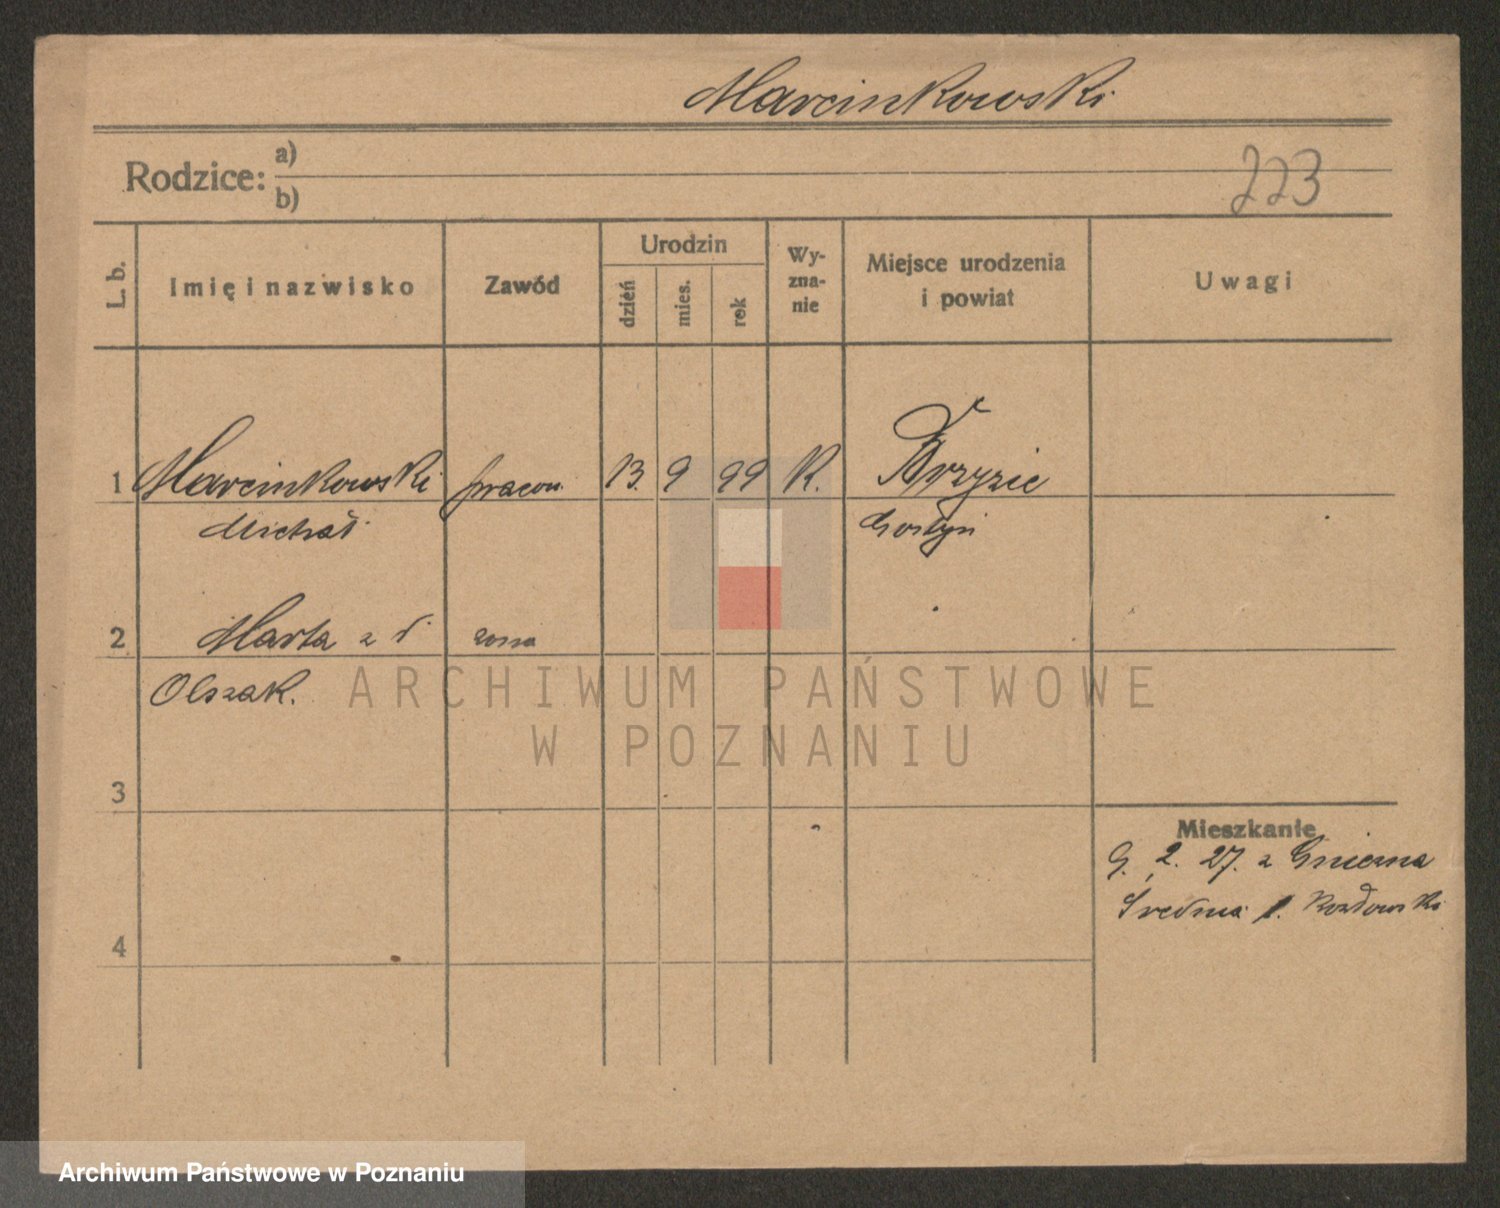 Marcinkowski
Rodzice: a)
b)
223
L. b.
Imię i nazwisko
Zawód
Urodzin
dzień
mies.
rok
Wy-
zna-
nie
Miejsce urodzenia
i powiat
Uwagi
1 Marcinkowski pracow. 13. 9 99 K.
Michał Gostyń
2 Marta z d. żona
Olszak.
3
Mieszkanie
9. 2. 27. z Gniezna
Średnia 1. Kozłowski
4
ARCHIWUM PAŃSTWOWE
W POZNANIU
Archiwum Państwowe w Poznaniu